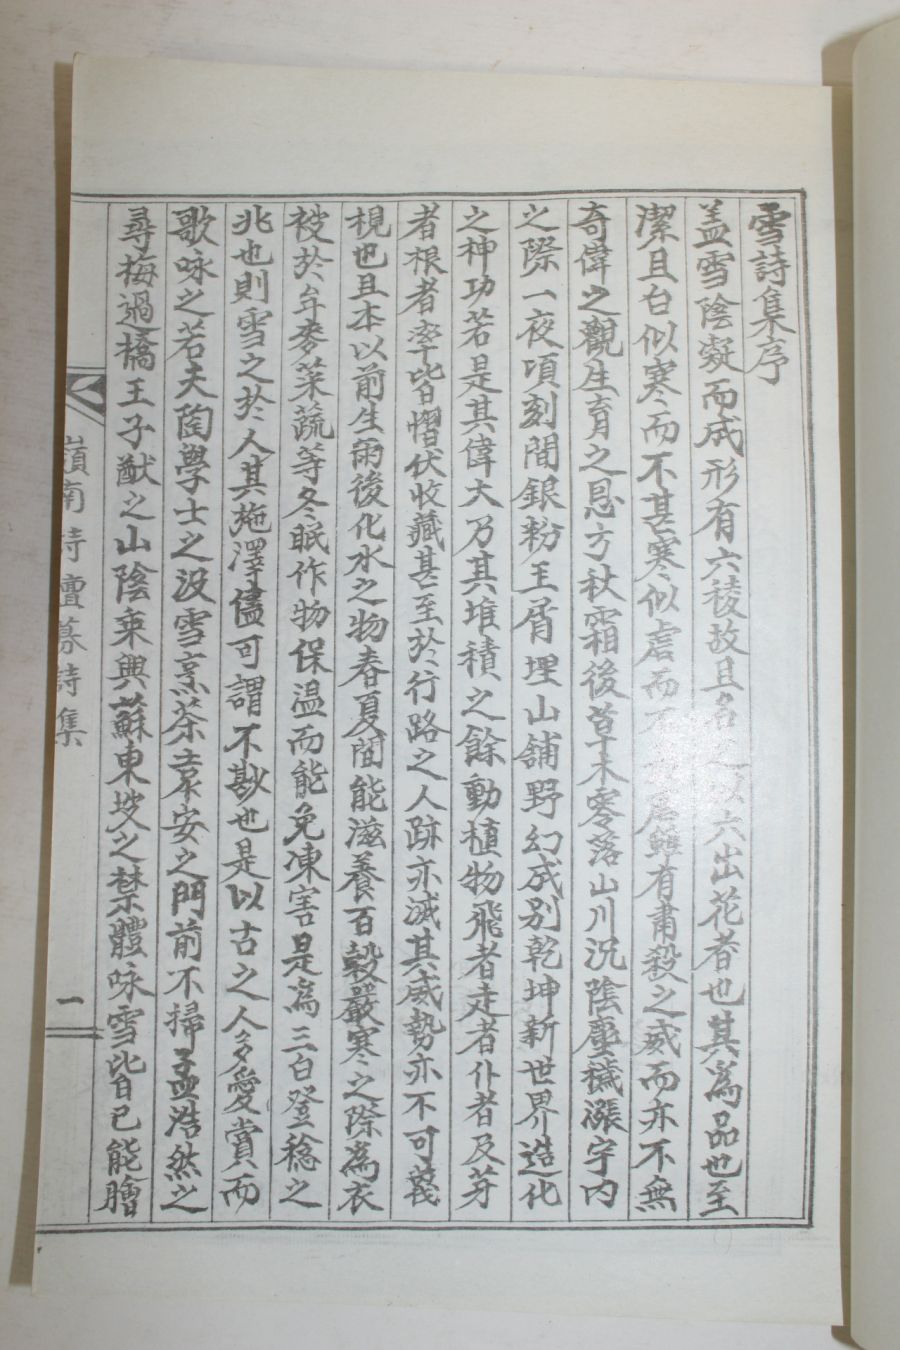 雪詩集序
盖雪陰凝而成形有六稜故且名之以六出花者也其爲品也至
潔且白似寒而不甚寒似虐而不虐雖有肅殺之威而亦不無
奇偉之觀生育之恩方秋霜後草木零落山川況陰塵穢漲宇內
之際一夜頃刻間銀粉玉屑埋山舖野幻成別乾坤新世界造化
之神功若是其偉大乃其堆積之餘動植物飛者走者仆者及芽
者根者率皆慴伏收藏甚至於行路之人跡亦滅其威勢亦不可蔑
視也且本以前生雨後化水之物春夏間能滋養百穀嚴寒之際爲衣
被於牟麥菜蔬等冬眠作物保温而能免凍害是爲三白登稔之
兆也則雪之於人其施澤儘可謂不尠也是以古之人多愛賞而
歌咏之若夫陶學士之汲雪烹茶袁安之門前不掃孟浩然之
尋梅過橋王子猷之山陰乘興蘇東坡之禁體咏雪皆已能膾
嶺南詩壇募詩集
一